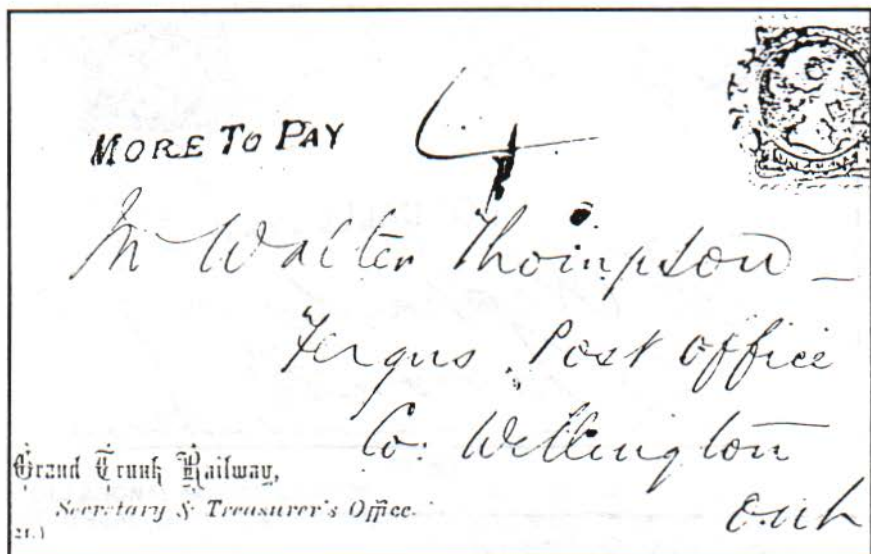 MORE TO PAY
4
Mr Walter Thompson
Fergus Post Office
Co: Wellington
Ont
Grand Trunk Railway,
Secretary & Treasurer's Office.